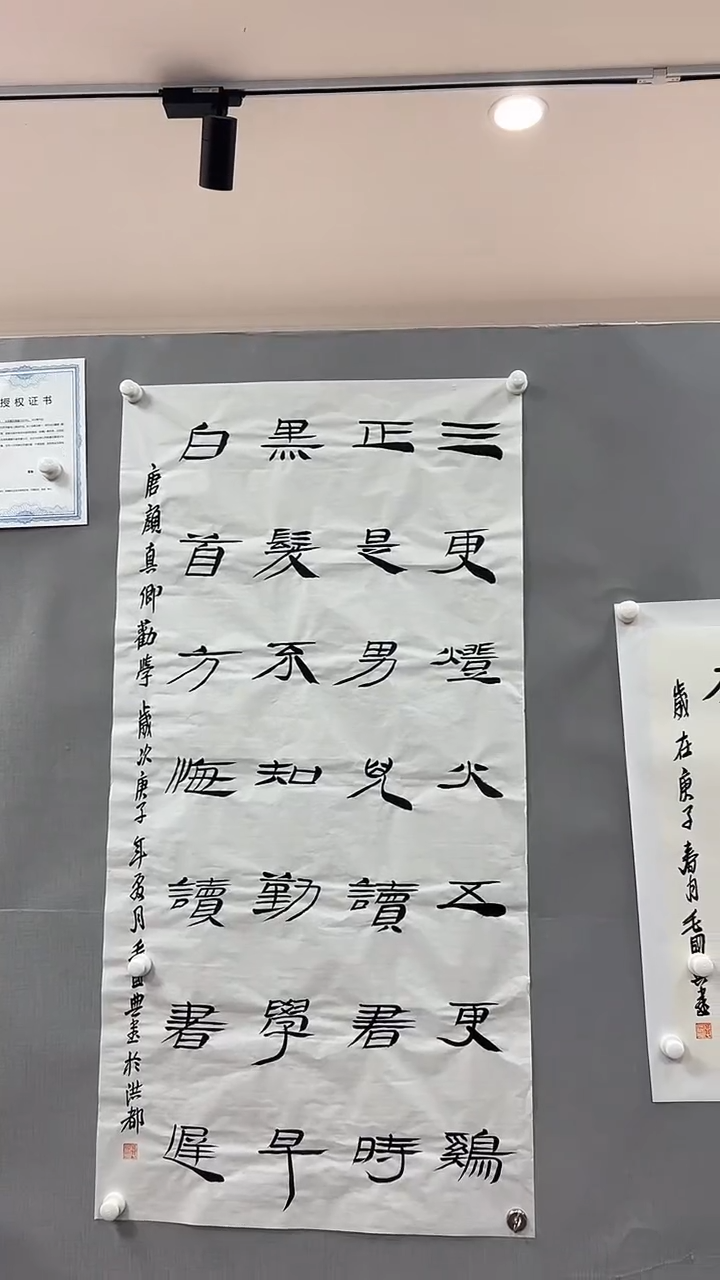 三更燈火五更鷄
正是男兒讀書時
黑髮不知勤學早
白首方悔讀書遲
唐顏真卿勸學 歲次庚子年夏月毛國典書於洪都
授权证书
歲在庚子春月毛國典書